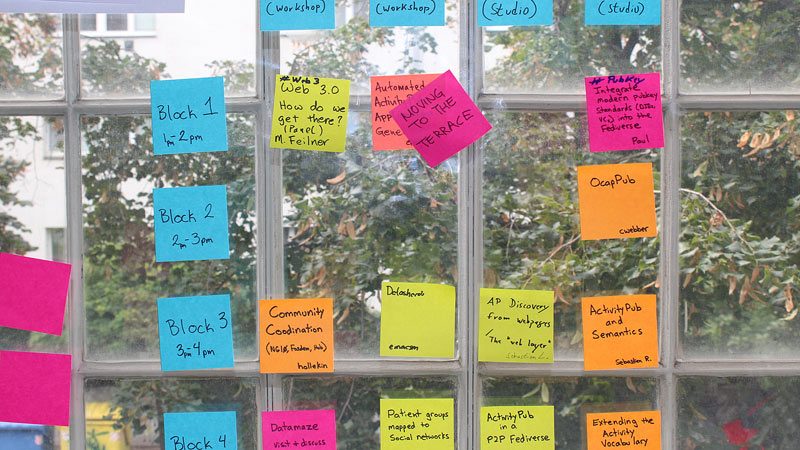 (Workshop)
(Workshop)
(Studio)
(Studio)
Block 1
1pm-2pm
#Web3
Web 3.0
How do we
get there?
M. Feilner
Automated
MOVING
TO THE
TERRACE
#PubKey
Integrate
modern pubkey
Standards
into the
Fediverse
Paul
Block 2
2pm-3pm
OcapPub
cwebber
Block 3
3pm-4pm
Community
Coordination
hollekin
emacsen
AP Discovery
from webpages
/The "web layer"
ActivityPub
and
Semantics
Sebastian R.
Block 4
Datamaze
visit + discuss
Patient groups
mapped to
Social networks
ActivityPub
in a
P2P Fediverse
Extending the
Activity
Vocabulary